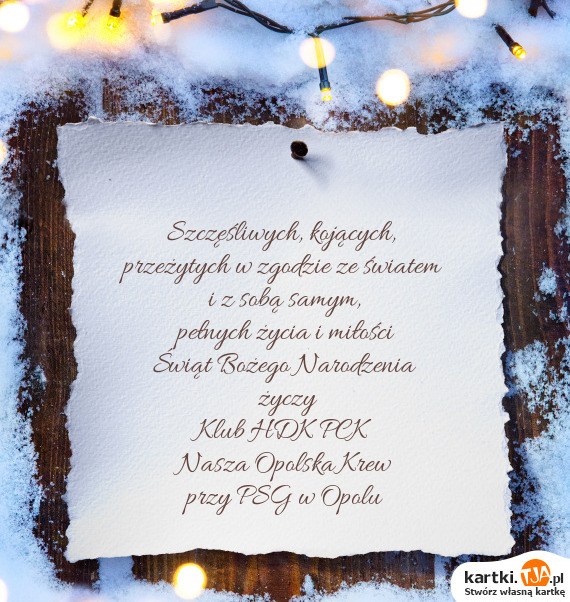 Szczęśliwych, kojących,
przeżytych w zgodzie ze światem
i z sobą samym,
pełnych życia i miłości
Świąt Bożego Narodzenia
życzy
Klub HDK PCK
Nasza Opolska Krew
przy PSG w Opolu
kartki.TJA.pl
Stwórz własną kartkę